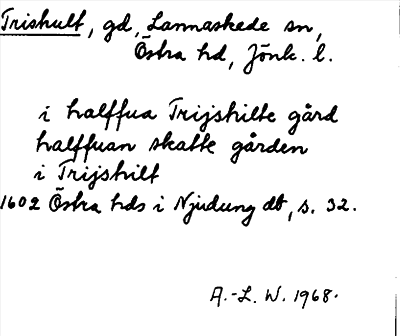 Trishult, gd, Lannaskede sn,
Östra hd, Jönk. l.
i halffua Trijshilte gård
halffuan skatte gården
i Trijshilt
1602 Östra hds i Njudung db, s. 32.
A.-L. W. 1968.